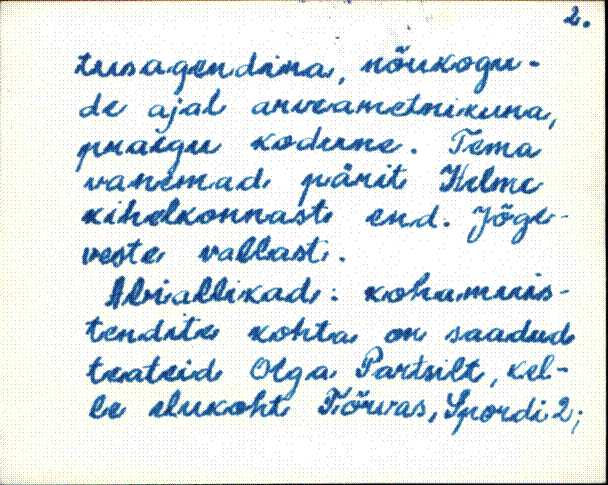 2.
tusagendina, nõukogu-
de ajal arveametnikuna,
praegu kodune. Tema
vanemad pärit Helme
kihelkonnast end. Jõge-
veste vallast.
Abiallikad: kohamuis-
tendite kohta on saadud
teateid Olga Partsilt, kel-
le elukoht Tõrvas, Spordi 2;